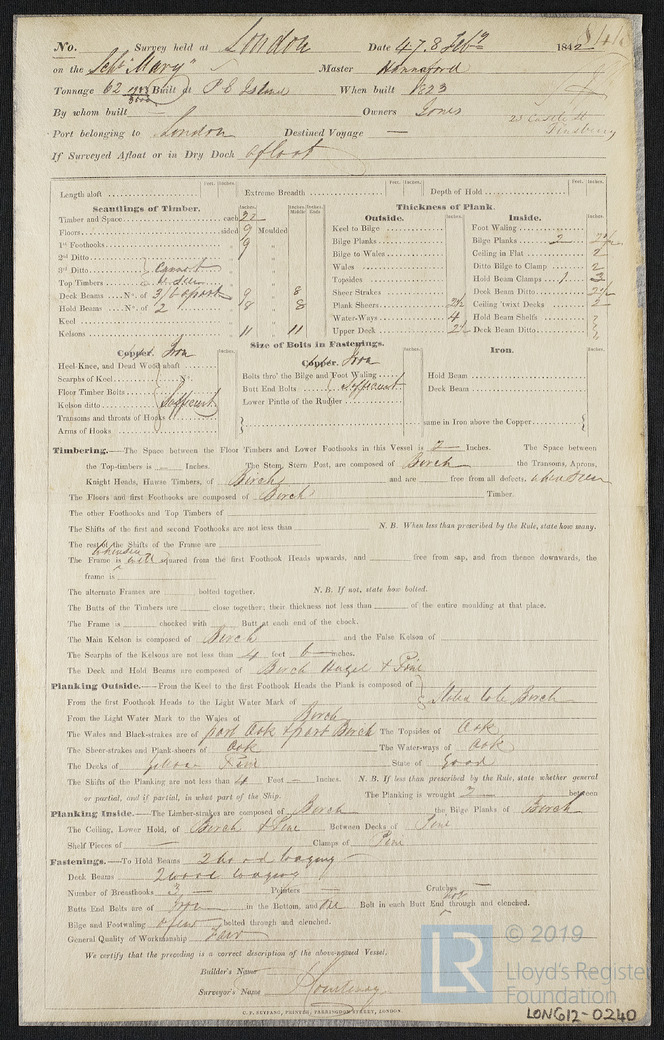 No. Survey held at London Date 4 7. 8 Feby 1842
on the Schr "Mary" Master Hannaford
Tonnage 62 Built at P E Island When built 1823
By whom built — Owners Jones
23 Castle St
Finsbury
Port belonging to London Destined Voyage —
If Surveyed Afloat or in Dry Dock afloat
Feet. Inches. Feet. Inches. Feet. Inches.
Length aloft Extreme Breadth Depth of Hold
Scantlings of Timber. Thickness of Plank.
Inches. Inches Middle Inches Ends Outside. Inches. Inside. Inches.
Timber and Space each 22
Floors sided 9 Moulded
1st Foothooks 9
2nd Ditto
3rd Ditto } Cannot
Top Timbers } be seen
Deck Beams No. of 3/6 apart 9 8
Hold Beams No. of 2 8 8
Keel
Kelsons 11 11
Keel to Bilge
Bilge Planks
Bilge to Wales
Wales
Topsides
Sheer Strakes
Plank Sheers 2½
Water-Ways 4
Upper Deck 2½
Foot Waling
Bilge Planks 2 2½
Ceiling in Flat 2
Ditto Bilge to Clamp 2
Hold Beam Clamps 1 3
Deck Beam Ditto 2½
Ceiling 'twixt Decks 2
Hold Beam Shelfs
Deck Beam Ditto
Size of Bolts in Fastenings.
Copper. Iron Copper. Iron Iron.
Heel-Knee, and Dead Wood abaft
Scarphs of Keel
Floor Timber Bolts
Kelson ditto } Sufficient
Transoms and throats of Hooks
Arms of Hooks
Bolts thro' the Bilge and Foot Waling
Butt End Bolts } Sufficient
Lower Pintle of the Rudder
Hold Beam
Deck Beam
same in Iron above the Copper
Timbering.—The Space between the Floor Timbers and Lower Foothooks in this Vessel is 2 Inches. The Space between
the Top-timbers is — Inches. The Stem, Stern Post, are composed of Birch the Transoms, Aprons,
Knight Heads, Hawse Timbers, of Birch and are free from all defects. when seen
The Floors and first Foothooks are composed of Birch Timber.
The other Foothooks and Top Timbers of
The Shifts of the first and second Foothooks are not less than N. B. When less than prescribed by the Rule, state how many.
The rest of the Shifts of the Frame are
when seen
The Frame is well squared from the first Foothook Heads upwards, and free from sap, and from thence downwards, the
frame is
The alternate Frames are bolted together. N. B. If not, state how bolted.
The Butts of the Timbers are close together; their thickness not less than of the entire moulding at that place.
The Frame is chocked with Butt at each end of the chock.
The Main Kelson is composed of Birch and the False Kelson of
The Scarphs of the Kelsons are not less than 4 feet 6 inches.
The Deck and Hold Beams are composed of Birch Hazel & Pine
Planking Outside.—From the Keel to the first Foothook Heads the Plank is composed of
From the first Foothook Heads to the Light Water Mark of } Stated to be Birch
From the Light Water Mark to the Wales of Birch
The Wales and Black-strakes are of part Oak & part Birch The Topsides of Oak
The Sheer-strakes and Plank-sheers of Oak The Water-ways of Oak
The Decks of Yellow Pine State of Good
The Shifts of the Planking are not less than 4 Feet — Inches. N. B. If less than prescribed by the Rule, state whether general
or partial, and if partial, in what part of the Ship. The Planking is wrought 2 between
Planking Inside.—The Limber-strakes are composed of Birch the Bilge Planks of Birch
The Ceiling, Lower Hold, of Birch & Pine Between Decks of Pine
Shelf Pieces of — Clamps of Pine
Fastenings.—To Hold Beams 2 wood lodging
Deck Beams 2 wood lodging
Number of Breasthooks 3 — Pointers — Crutches —
not
Butts End Bolts are of Iron in the Bottom, and one Bolt in each Butt End through and clenched.
Bilge and Footwaling a few bolted through and clenched.
General Quality of Workmanship Fair
We certify that the preceding is a correct description of the above-named Vessel.
Builder's Name
Surveyor's Name P Courtenay
C. F. SEYFANG, PRINTER, FARRINGDON STREET, LONDON.
LR © 2019
Lloyd's Register
Foundation
LON612-0240